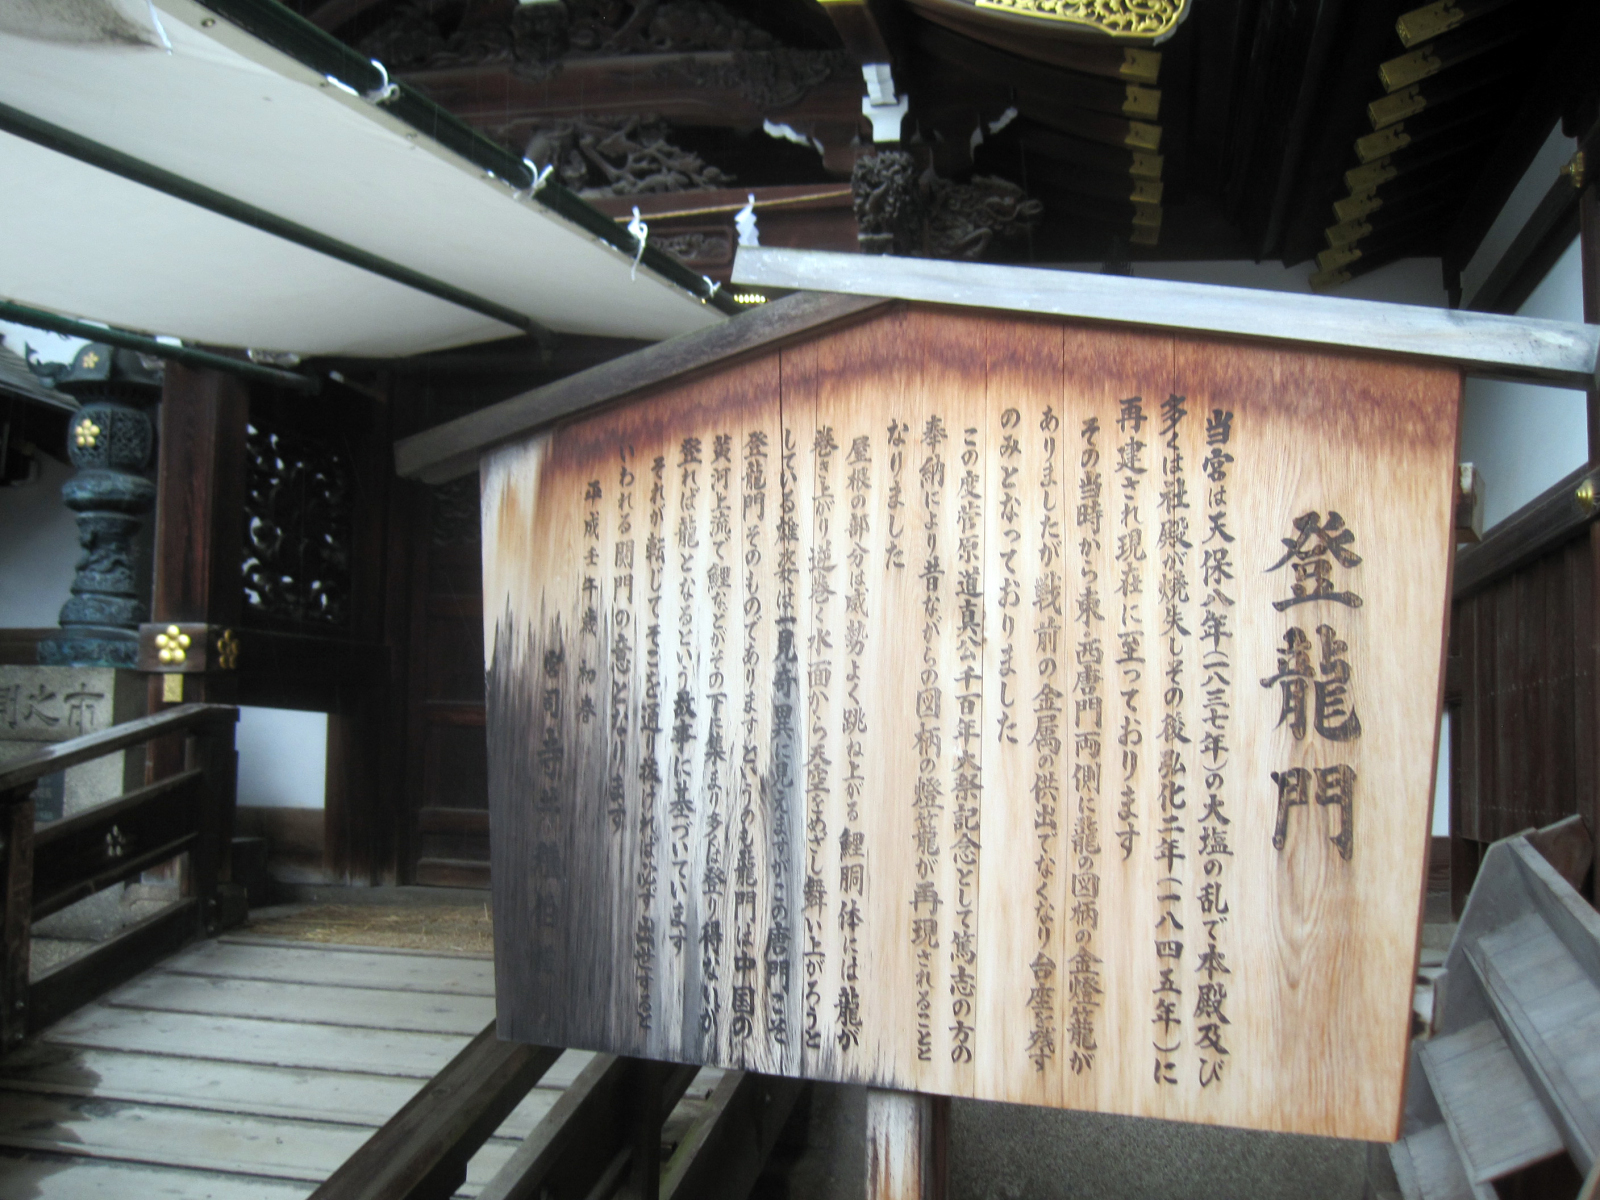 登龍門
当宮は天保八年(一八三七年)の大塩の乱で本殿及び
多くは社殿が焼失しその後弘化二年(一八四五年)に
再建され現在に至っております
その当時から東・西唐門両側に龍の図柄の金燈籠が
ありましたが戦前の金属の供出でなくなり台座を残す
のみとなっておりました
この度菅原道真公千百年大祭記念として篤志の方の
奉納により昔ながらの図柄の燈籠が再現されること
なりました
屋根の部分は威勢よく跳ね上がる鯉胴体には龍が
巻き上がり逆巻く水面から天空をめざし舞い上がろうと
している雄姿は一見奇異に見えますがこの唐門こそ
登龍門そのものでありますというのも龍門は中国の
黄河上流で鯉などがその下に集まり多くは登り得ないが
登れば龍となるという故事に基づいています
それが転じてそこを通り抜ければ必ず出世すると
いわれる関門の意となります
平成壬午歳 初春
宮司寺井種伯
市火